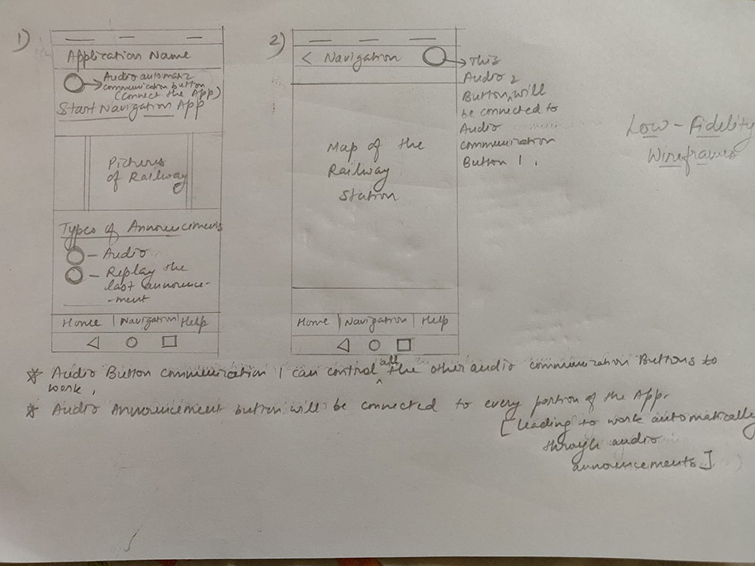 1)
Application Name
Audio automatic
communication button
(Connect the App)
Start Navigation App
Pictures
of Railway
Types of Announcements
– Audio
– Replay the
last announce-
-ment
Home | Navigation | Help
2)
< Navigation
This
Audio 2
Button, will
be connected to
Audio
communication
Button 1.
Map of the
Railway
Station
Home | Navigation | Help
Low-Fidelity
Wireframes
* Audio Button communication 1 can control all the other audio communication Buttons to
work.
* Audio Announcement button will be connected to every portion of the App.
[leading to work automatically
through audio
announcements]